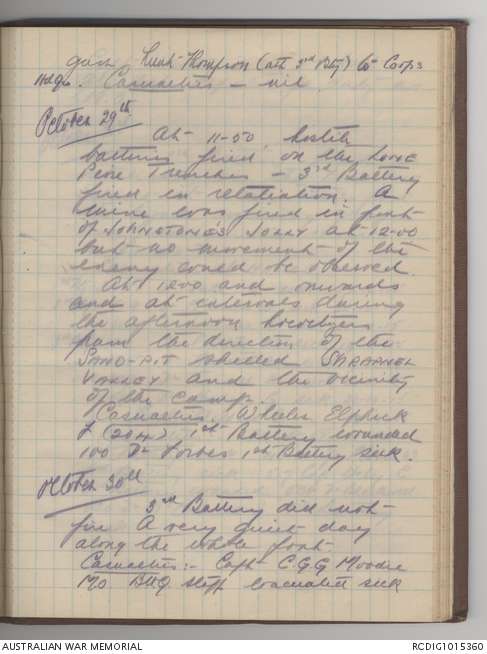 Lieut Thompson (att 3rd Bty) to Corps
Hdqs. Casualties - nil.
October 29th
At 11-50 hostile
batteries fired on the LONE
PINE Trenches - 3rd Battery
fired in retaliation. A
mine was fired in front
of JOHNSTONES JOLLY at 12-00
but no movement of the
enemy could be observed.
At 1200 and onwards
and at intervals during
the afternoon howitzers
from the direction of the
SAND-PIT shelled SHRAPNEL
VALLEY and the vicinity
of the camp.
Casualties. Wheeler Elphick
J (204) 1st Battery wounded
100 Dr Forbes 1st Battery sick.
October 30th
3rd Battery did not
fire A very quiet day
along the whole front
Casualties:- Capt C.G.G Moodie
MO BHQ Staff evacuated sick
AUSTRALIAN WAR MEMORIAL
RCDIG1015360